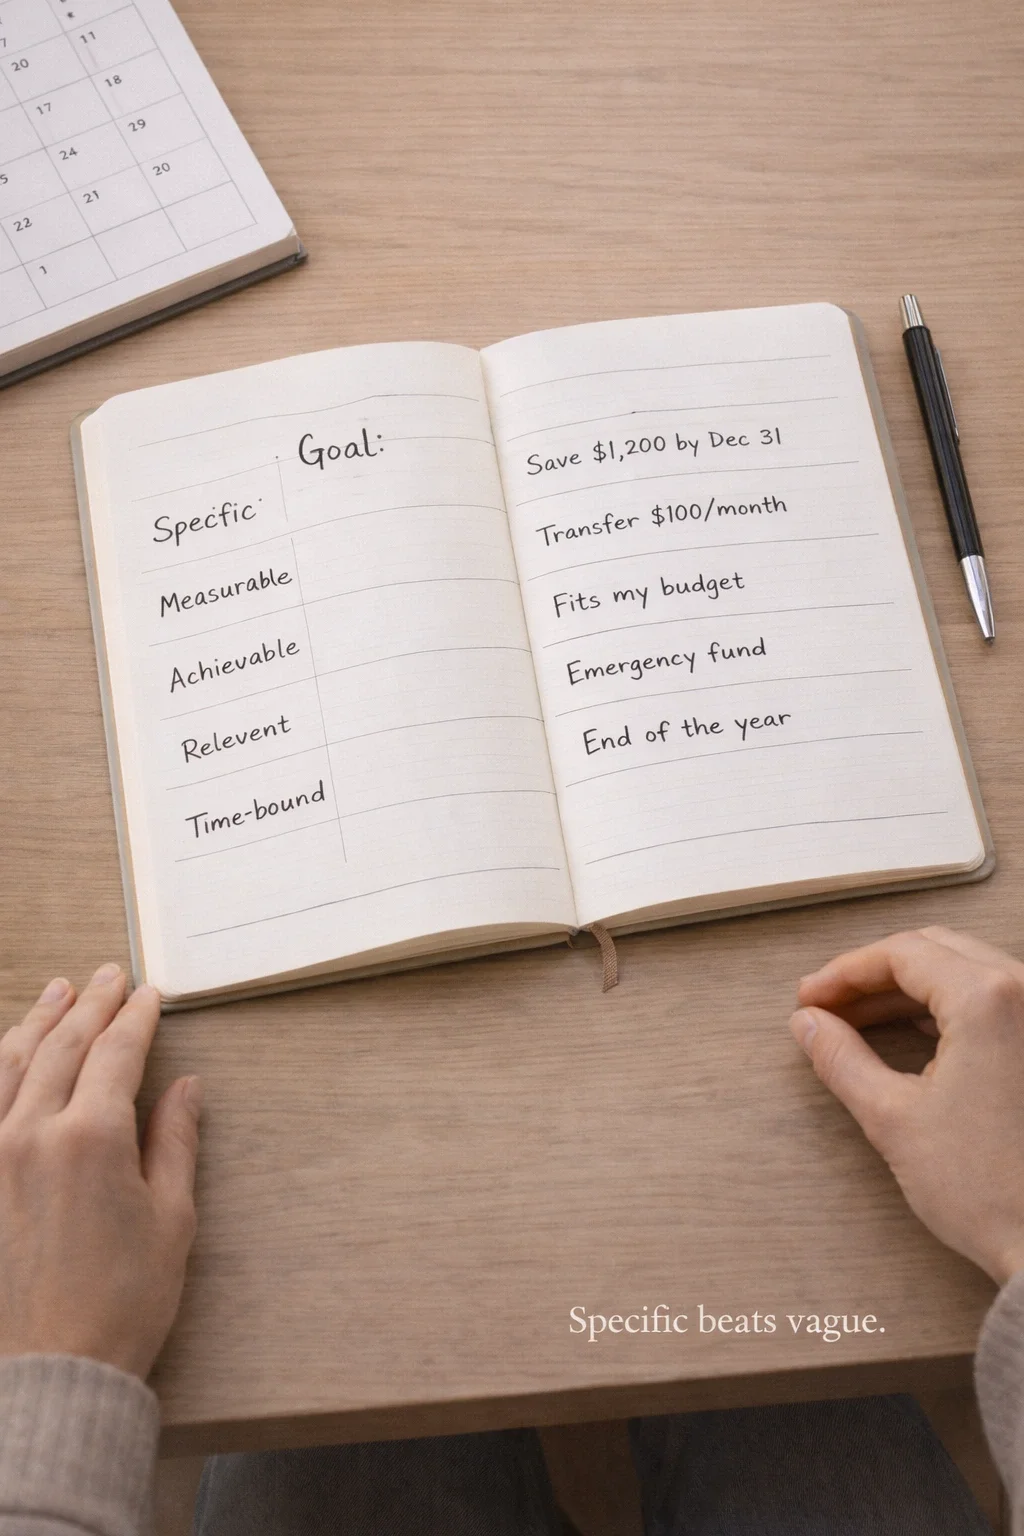 11
20
18
17
29
24
20
21
22
1
Goal:
Specfic
Measurable
Achievable
Relevent
Time-bound
Save $1,200 by Dec 31
Transfer $100/month
Fits my budget
Emergency fund
End of the year
Specific beats vague.